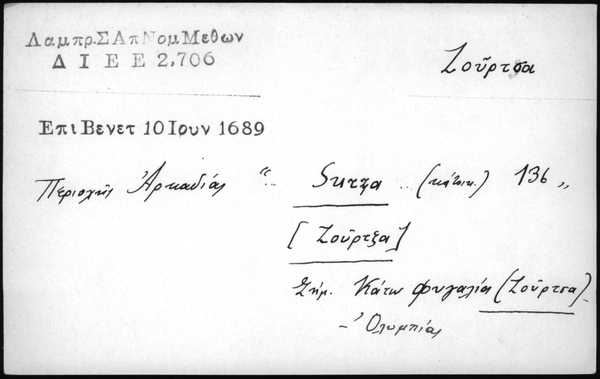 Λαμπρ.ΣΑπΝομΜεθων
ΔΙΕΕ 2,706
Ζοῦρτσα
ΕπιΒενετ 10 Ιουν 1689
Περιοχῆς Ἀρκαδίας "..  Surza .. (κάτοικ.) 136 „
[Ζοῦρτζα]
Σήμ. Κάτω Φυγαλία (Ζοῦρτσα)
– Ὀλυμπίας